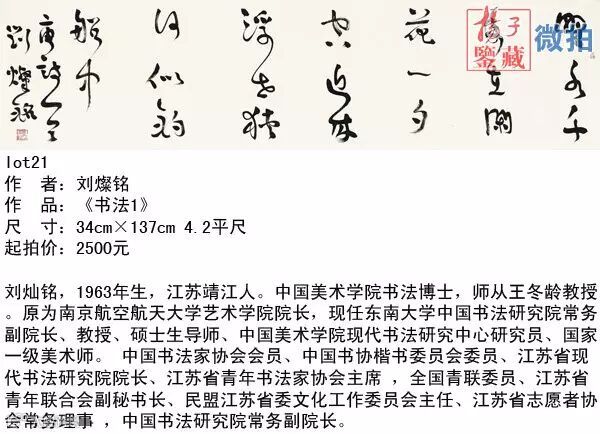 水千
在阑
花一夕
空近林
浮世
何似钓
船中
唐诗一首
劉燦銘
子
鉴藏
微拍
lot21
作 者：刘燦铭
作 品：《书法1》
尺 寸：34cm×137cm 4.2平尺
起拍价：2500元
刘灿铭，1963年生，江苏靖江人。中国美术学院书法博士，师从王冬龄教授
。原为南京航空航天大学艺术学院院长，现任东南大学中国书法研究院常务
副院长、教授、硕士生导师、中国美术学院现代书法研究中心研究员、国家
一级美术师。 中国书法家协会会员、中国书协楷书委员会委员、江苏省现
代书法研究院院长、江苏省青年书法家协会主席 ，全国青联委员、江苏省
青年联合会副秘书长、民盟江苏省委文化工作委员会主任、江苏省志愿者协
会常务理事 ，中国书法研究院常务副院长。